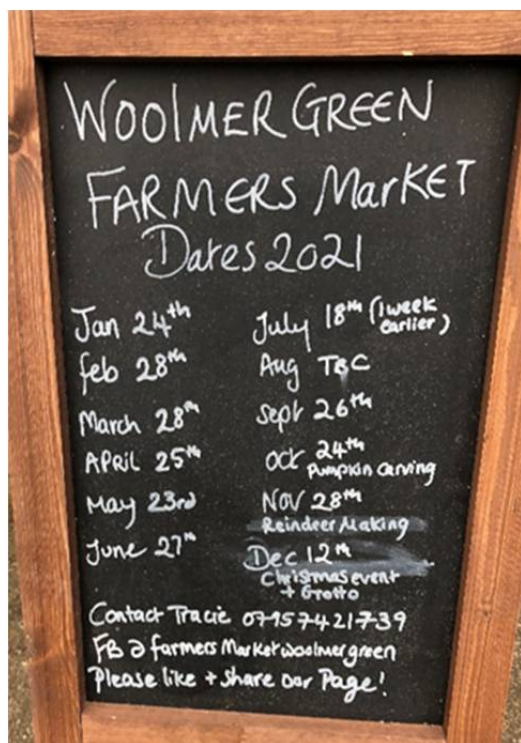 WOOlMER GREEN
FARMERS MarKET
Dates 2021
Jan 24th
feb 28th
March 28th
APRIL 25th
May 23rd
June 27th
July 18th (1 week earlier)
Aug TBC
Sept 26th
Oct 24th
Pumpkin Carving
NOV 28th
Reindeer Making
Dec 12th
Christmas event
+ Grotto
Contact Tracie 07957421739
FB @ farmers Market woolmer green
Please like + share our Page!